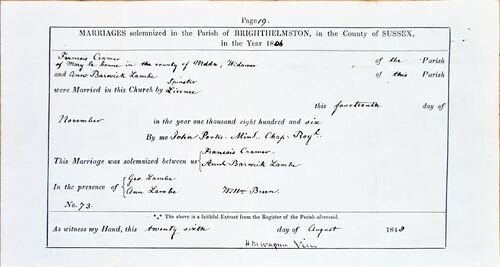 Page 19.
MARRIAGES solemnized in the Parish of BRIGHTHELMSTON, in the County of SUSSEX,
in the Year 1806
Francis Cramer of the Parish
of Mary le bonne in the county of Middx, Widower
and Ann Barwick Lambe Spinster of this Parish
were Married in this Church by Licence
this fourteenth day of
November in the year one thousand eight hundred and six
By me John Portis - Minr. Chap. Royl.
This Marriage was solemnized between us { Francois Cramer
Ann Barwick Lambe
In the presence of { Geo. Lambe
Ann Lambe Willm Breen.
No. 73.
*** The above is a faithful Extract from the Register of the Parish aforesaid.
As witness my Hand, this twenty sixth day of August 1848
H M Wagner Vicar